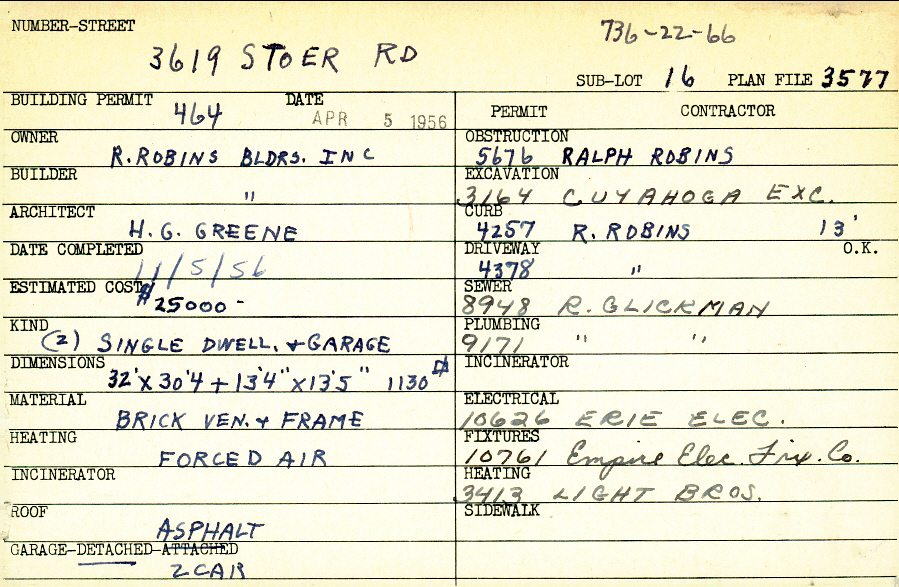 NUMBER-STREET
3619 STOER RD
736-22-66
SUB-LOT 16 PLAN FILE 3577
BUILDING PERMIT 464 DATE APR 5 1956
PERMIT CONTRACTOR
OWNER R. ROBINS BLDRS. INC
OBSTRUCTION 5676 RALPH ROBINS
BUILDER "
EXCAVATION 3164 CUYAHOGA EXC.
ARCHITECT H. G. GREENE
CURB 4257 R. ROBINS 13'
DATE COMPLETED 11/5/56
DRIVEWAY 4378 " O.K.
ESTIMATED COST $25000-
SEWER 8948 R. GLICKMAN
KIND (2) SINGLE DWELL. + GARAGE
PLUMBING 9171 " "
DIMENSIONS 32' X 30'4 + 13'4" X 13'5" 1130
INCINERATOR
MATERIAL BRICK VEN. + FRAME
ELECTRICAL 10626 ERIE ELEC.
HEATING FORCED AIR
FIXTURES 10761 Empire Elec. Fix. Co.
INCINERATOR
HEATING 3413 LIGHT BROS.
ROOF ASPHALT
SIDEWALK
GARAGE-DETACHED-ATTACHED
2 CAR